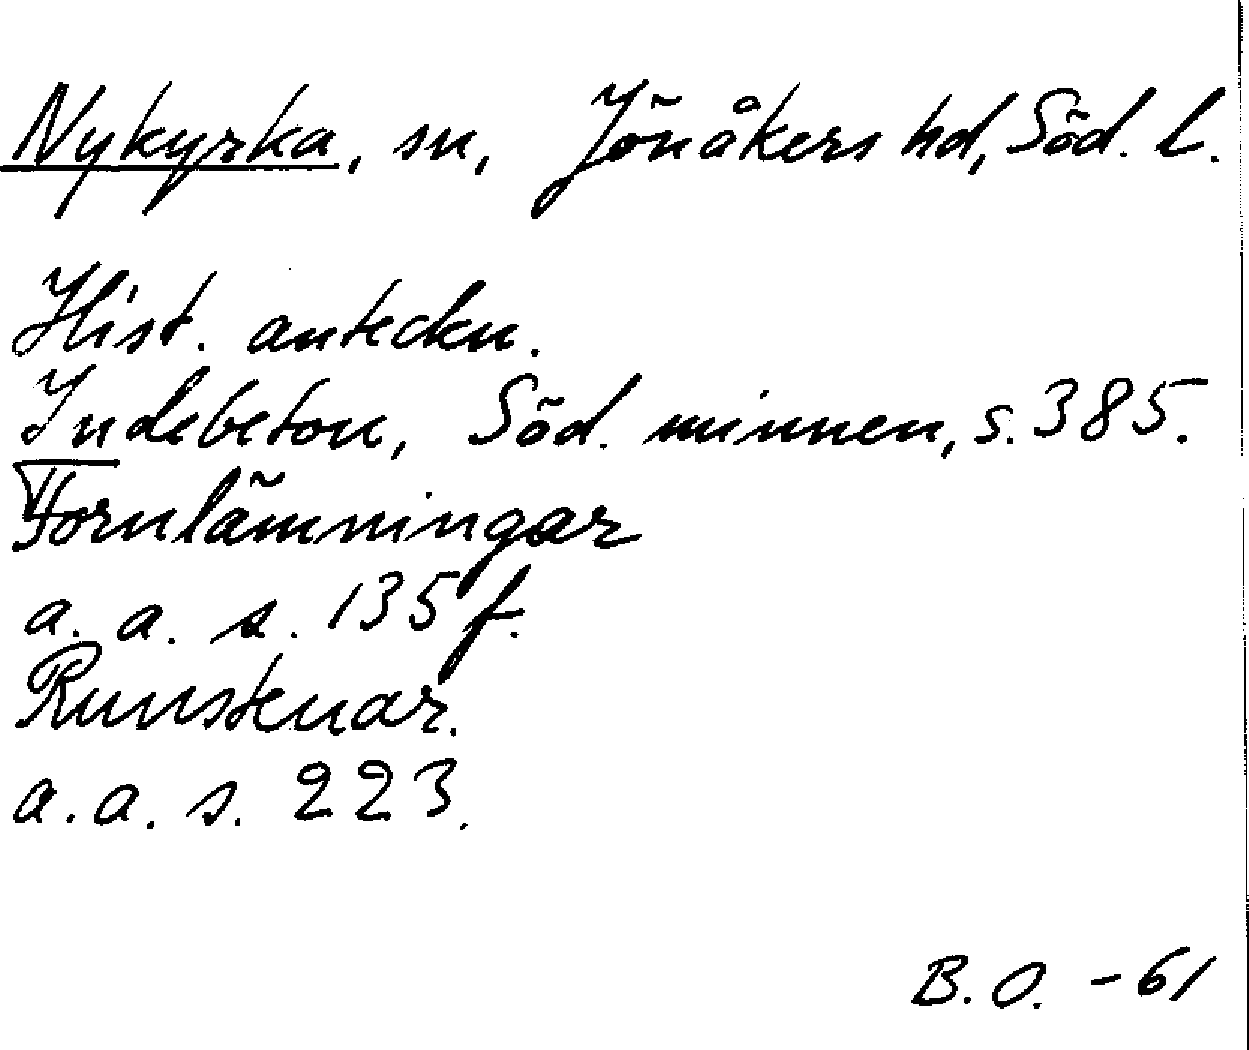 Nykyrka, sn, Jönåkers hd, Söd. l.
Hist. anteckn.
Indebetou, Söd. minnen, s. 385.
Fornlämningar
a. a. s. 135 f.
Runstenar.
a. a. s. 223.
B. O. - 61